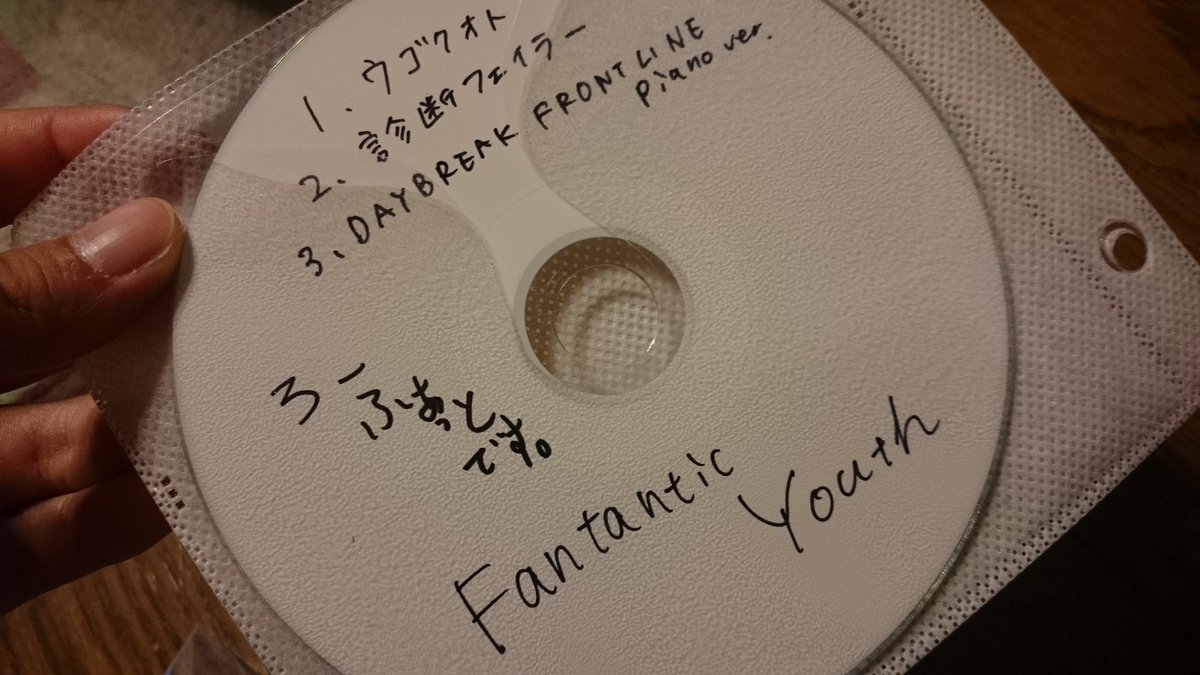 1、ウゴクオト
2、診断フェイラー
3、DAYBREAK FRONTLINE
piano ver.
ろーふぁっと
です。
Fantantic Youth